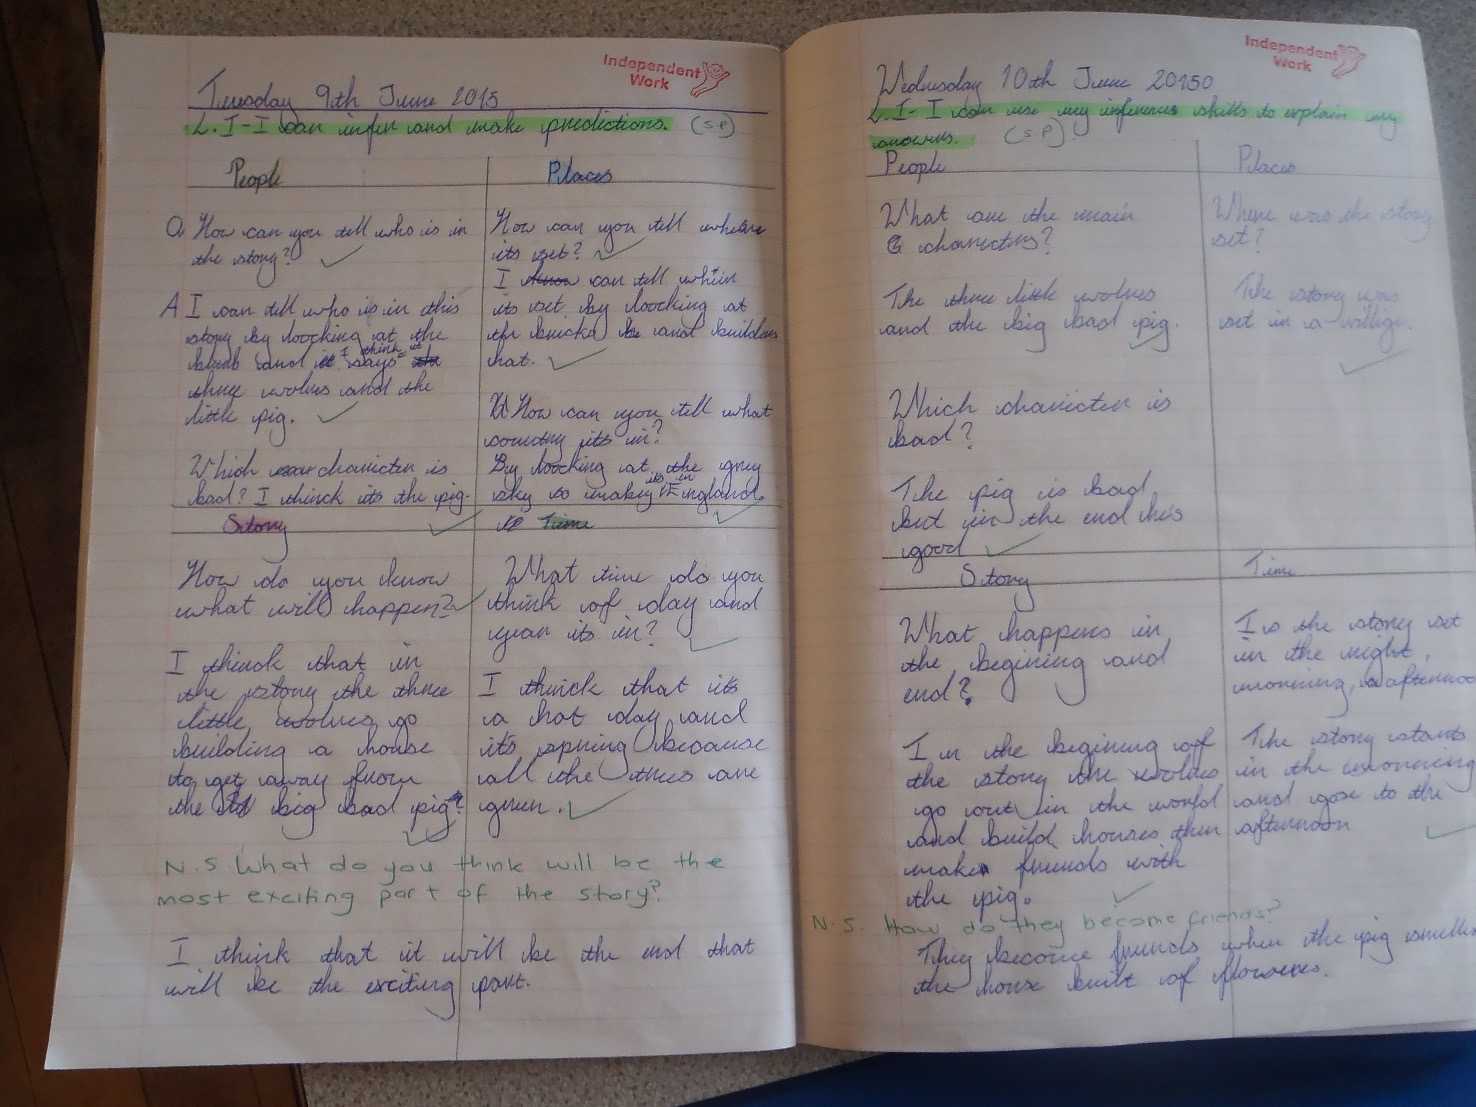 Independent
Work
Tuesday 9th June 2015
L.I-I can infer and make predictions. (S.P)
People
Q How can you tell who is in
the story?
A I can tell who is in this
story by loocking at the
blurb and it I think it says
three wolves and the
little pig.
Which charicter is
bad? I thinck its the pig.
Places
How can you tell where
its set?
I can tell when
its set by loocking at
the bricks and builders
hat.
How can you tell what
country its in?
By loocking at the grey
sky so maby its in England.
Story
How do you know
what will happen?
I thinck that in
the story the three
little wolves go
building a house
to get away from
the big bad pig.
Time
What time do you
think of day and
year its in?
I thinck that its
a hot day and
it's spring because
all the trees are
green.
N.S What do you think will be the
most exciting part of the story?
I think that it will be the end that
will be the exciting part.
Independent
Work
Wednesday 10th June 20150
L.I- I can use my inference skills to explain my
answers. (S.P)
People
What are the main
characters?
The three little wolves
and the big bad pig.
Which charicter is
bad?
The pig is bad
but in the end he's
good
Places
Where was the story
set?
The story was
set in a villige.
Story
What happens in
the begining and
end?
In the begining of
the story the wolves
go out in the world
and build houses then
make friends with
the pig.
Time
Is the story set
in the night,
morning, afternoo
The story starts
in the morning
and gose to the
afternoon
N.S. How do they become friends?
They become friends when the pig smells
the house built of flowers.